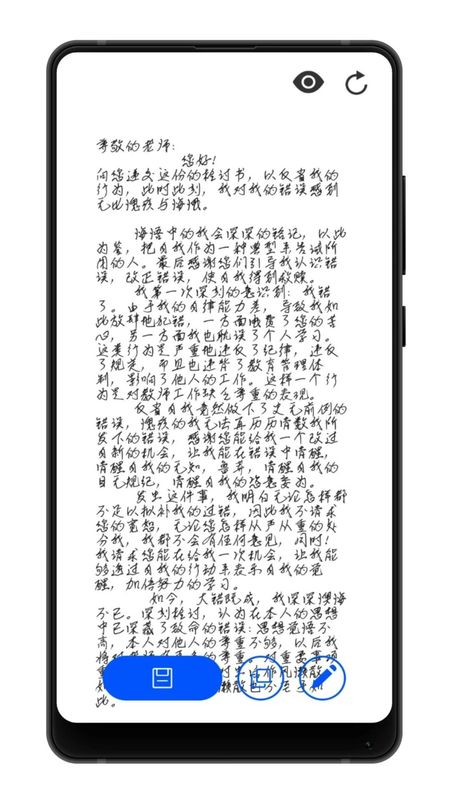 尊敬的老师:
您好!
向您递交这份的检讨书，以反省我的
行为，此时此刻，我对我的错误感到
无比愧疚与海恨。
海语中的我会深深的铭记，以此
为鉴，把自我作为一种典型来告诫所
周的人。最后感谢您们引导我认识错
误，改正错误，使自我得到救赎。
我第一次深刻的意识到：我错
了。由于我的自律能力差，导致我如
此放肆地犯错，一方面浪费了您的苦
心，另一方面我也耽误了个人学习。
这类行为是严重地违反了纪律，违反
了规定，而且也违背了教育管理体
制，影响了他人的工作。这样一个行
为是对教师工作缺乏尊重的表现。
反省自我竟然做下了史无前例的
错误，愧疚的我无法再历历清数我所
发下的错误，感谢您能给我一个改过
自新的机会，让我能在错误中清醒，
清醒自我的无知，鲁莽，清醒自我的
目无规纪，清醒自我的恣意妄为。
发出这件事，我明白无论怎样都
不足以拟补我的过错，因此我不请求
您的宽恕，无论您怎样从严从重的处
分我，我都不会有任何意见，同时！
我请求您能在给我一次机会，让我能
够透过自我的行动来表示自我的觉
醒，加倍努力的学习。
如今，大错既成，我深深懊悔
不已。深刻检讨，认为在本人的思想
中已深藏了致命的错误：思想觉悟不
高，本人对他人的尊重不够，以后我
此。